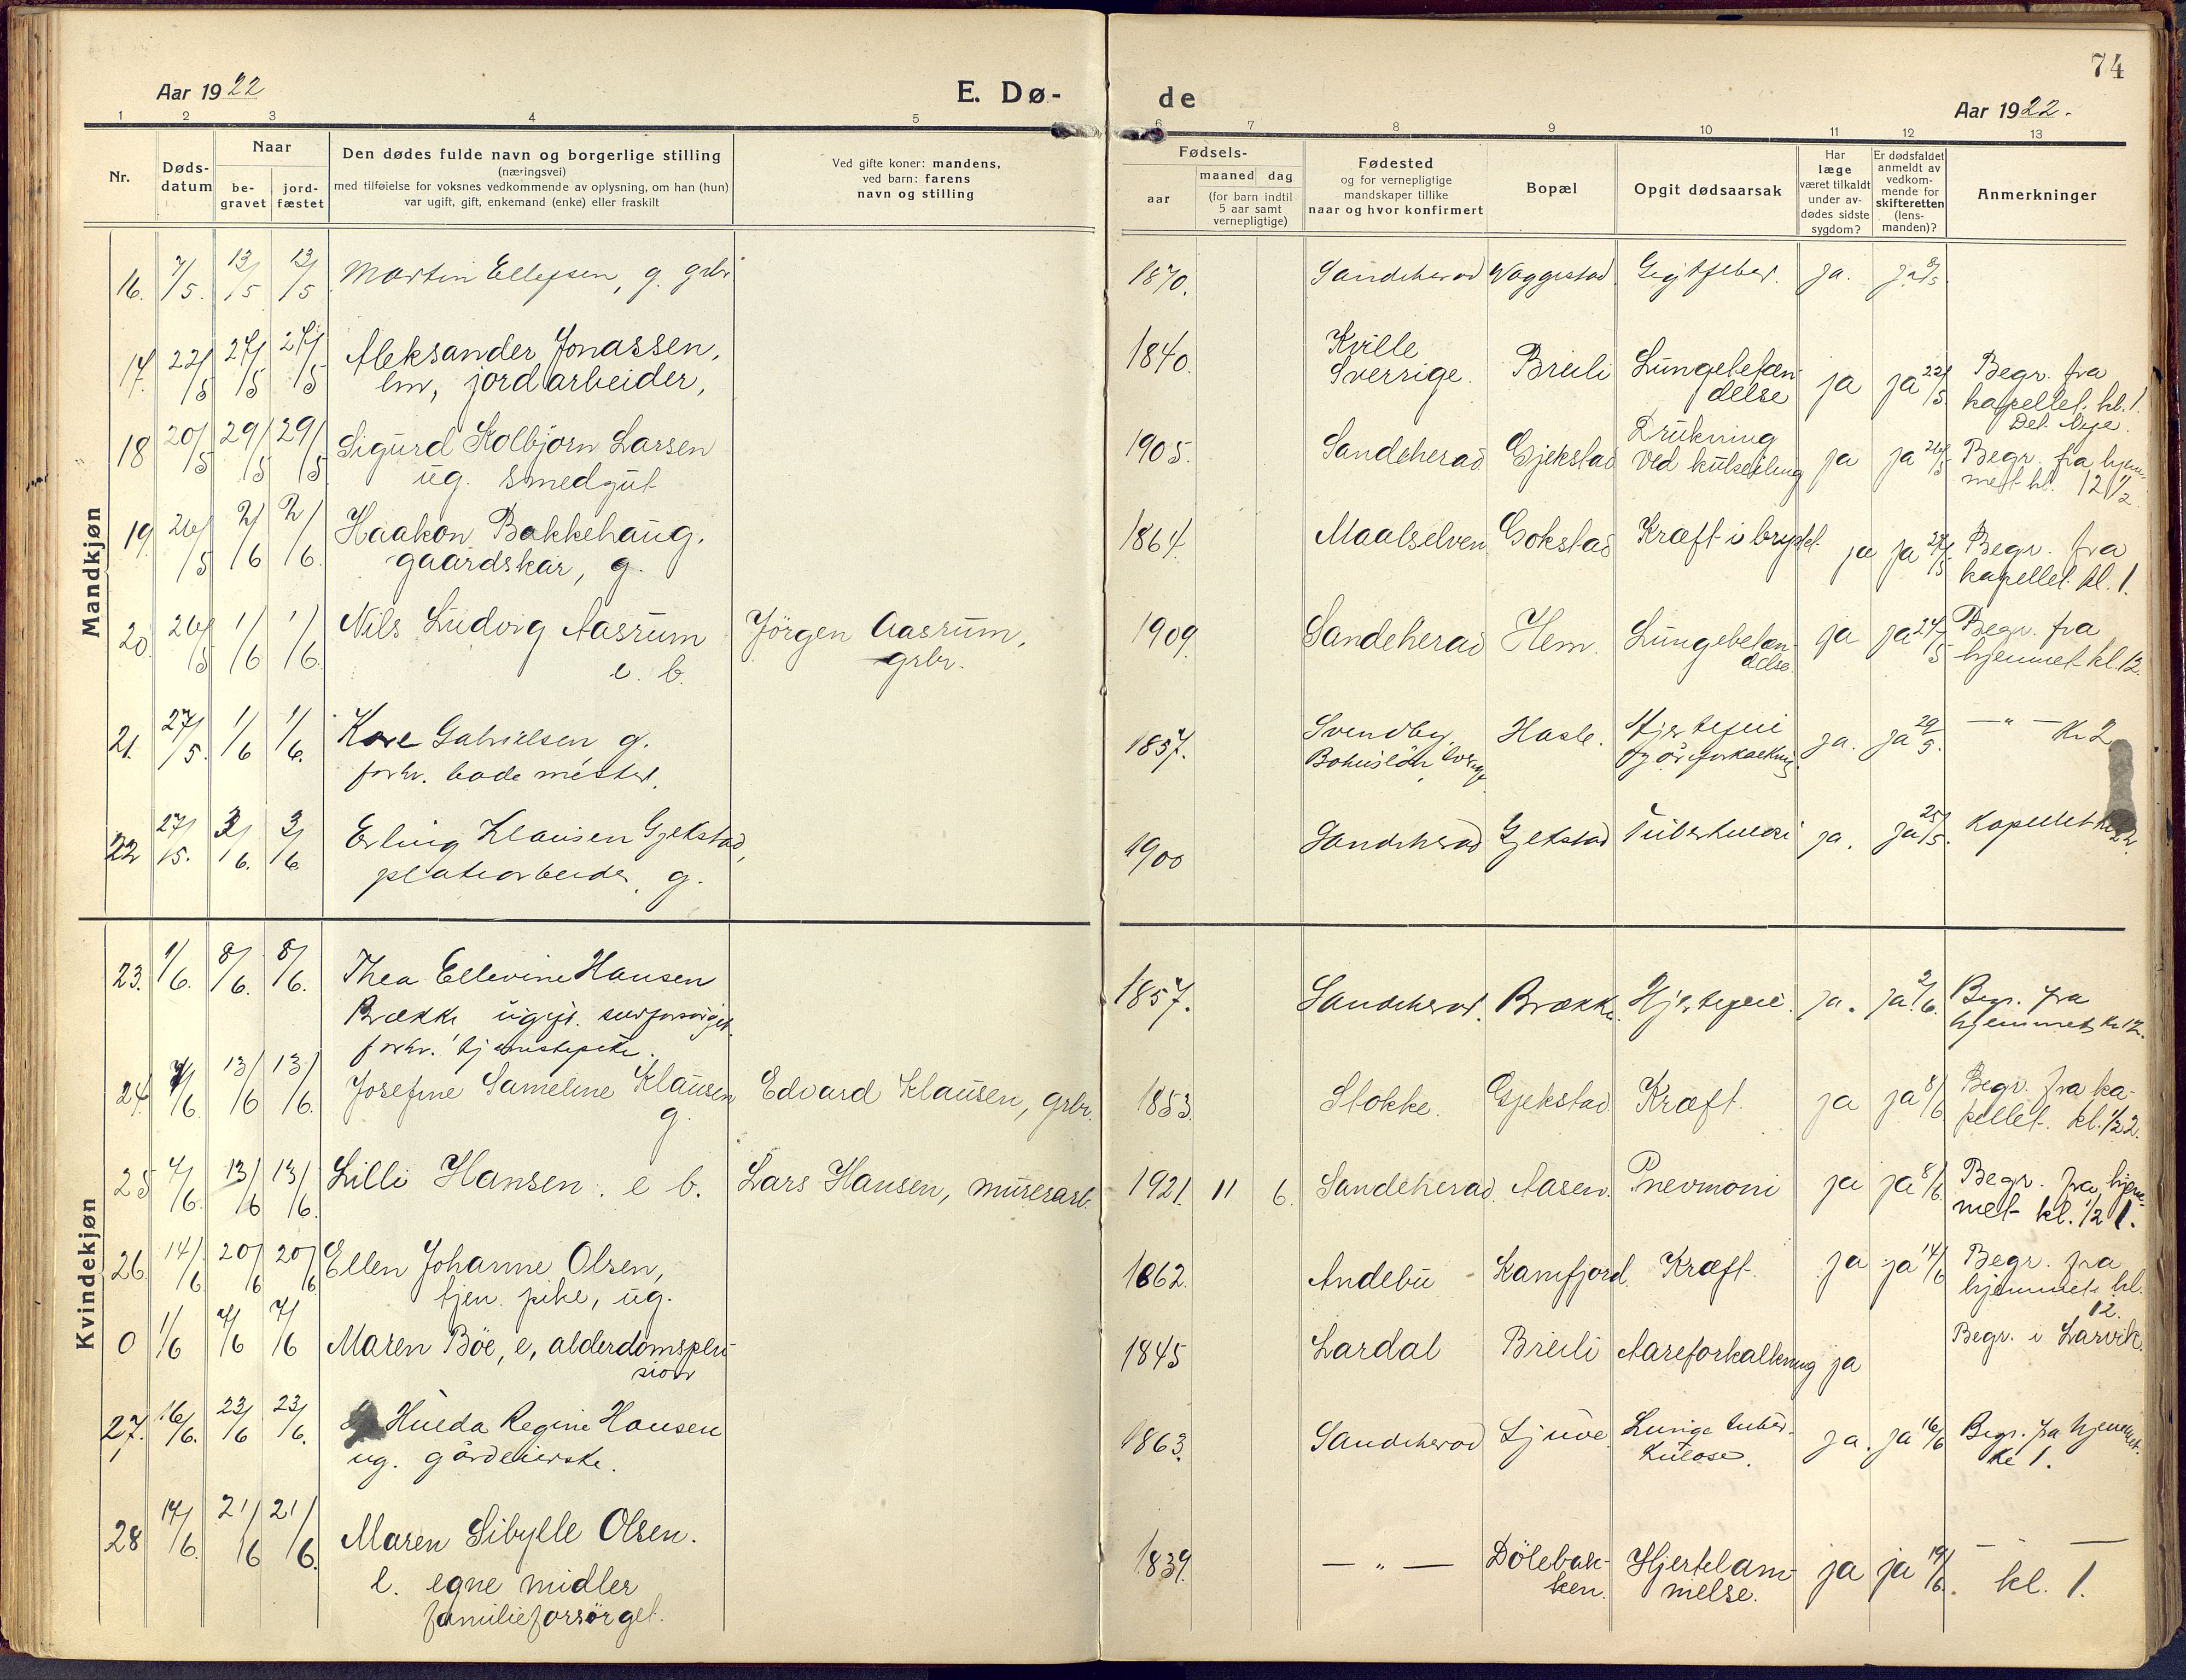 74
Aar 1922
E. Dø-
de
Aar 1922.
1 2 3 4 5 6 7 8 9 10 11 12 13
Nr.
Døds-
datum
Naar
be-
gravet
jord-
fæstet
Den dødes fulde navn og borgerlige stilling
(næringsvei)
med tilføielse for voksnes vedkommende av oplysning, om han (hun)
var ugift, gift, enkemand (enke) eller fraskilt
Ved gifte koner: mandens,
ved barn: farens
navn og stilling
Fødsels-
aar
maaned dag
(for barn indtil
5 aar samt
vernepligtige)
Fødested
og for vernepligtige
mandskaper tillike
naar og hvor konfirmert
Bopæl
Opgit dødsaarsak
Har
læge
været tilkaldt
under av-
dødes sidste
sygdom?
Er dødsfaldet
anmeldt av
vedkom-
mende for
skifteretten
(lens-
manden)?
Anmerkninger
Mandkjøn
16. 7/5. 13/5 13/5 Martin Ellefsen, g. grbr. 1870. Sandeherad Vaggestad. Gigtfeber. ja. ja 8/5
17. 22/5 27/5 27/5 Aleksander Jonassen,
em, jordarbeider,
1840. Kville
Sverrige. Breili Lungebetæn-
delse ja ja 22/5 Begr. fra
kapellet. kl. 1.
18 20/5 29/5 29/5 Sigurd Kolbjørn Larsen
ug. smedgut
1905. Sandeherad Gjekstad Drukning
ved kulseiling ja ja 26/5 Begr. fra hjem-
met kl. 12 1/2
19. 26/5 2/6 2/6 Haakon Bakkehaug.
gaardskar, g.
1864. Maalselven Gokstad Kræft i brystet ja ja 27/5 Begr. fra
kapellet kl. 1.
20. 26/5 1/6 1/6 Nils Ludvig Aasrum
e. b.
Jörgen Aasrum,
grbr.
1909. Sandeherad Hem. Lungebetæn-
delse. ja ja 27/5 Begr. fra
hjemmet kl. 12.
21. 27/5. 1/6 1/6. Kare Gabrielsen g.
forhv. bademester.
1857. Svendby,
Bohuslän Hasle. Hjertefeil
og åreforkalkning. ja. ja 29/5. — " — Kl 2
22 27/5. 3/6. 3/6 Erling Klausen Gjekstad,
platearbeider, g.
1900 Sandeherad Gjekstad Tuberkulosi ja. ja 25/5. Kapellet
Kvindekjøn
23. 1/6. 8/6. 8/6. Thea Ellevine Hansen
Brække ugift. selvforsørget
forhv. tjenestepike.
1857. Sandeherad. Brække. Hjertefeil. ja. ja 2/6. Begr. fra
hjemmet kl 12.
24. 7/6. 13/6 13/6. Josefine Sameline Klausen
g.
Edvard Klausen, grbr. 1853. Stokke. Gjekstad. Kræft. ja ja 8/6 Begr. fra ka-
pellet. kl. 1/2 2.
25 7/6. 13/6 13/6. Lilli Hansen. e b. Lars Hansen, murerarb. 1921. 11 6. Sandeherad. Aasen. Pnevmoni ja ja 8/6. Begr. fra hjem-
met kl. 1/2 1.
26. 14/6 20/6 20/6 Ellen Johanne Olsen,
tjen. pike, ug.
1862. Andebu Kamfjord. Kræft. ja ja 14/6 Begr. fra
hjemmet kl.
12.
0 1/6 7/6 7/6 Maren Böe, e, alderdomspen-
sion
1845 Lardal Breili Aareforkalkning ja Begr. i Larvik.
27. 16/6. 23/6 23/6. Hulda Regine Hansen
ug. gårdeierske.
1863. Sandeherad Ljuve Lunge tuber-
kulose. ja. ja 16/6 Begr. fra hjemmet.
kl 1.
28 17/6. 21/6 21/6. Maren Sibylle Olsen.
e. egne midler
familieforsörget.
1839. — " — Dölebak-
ken. Hjertelam-
melse. ja ja 19/6. — —
kl. 1.